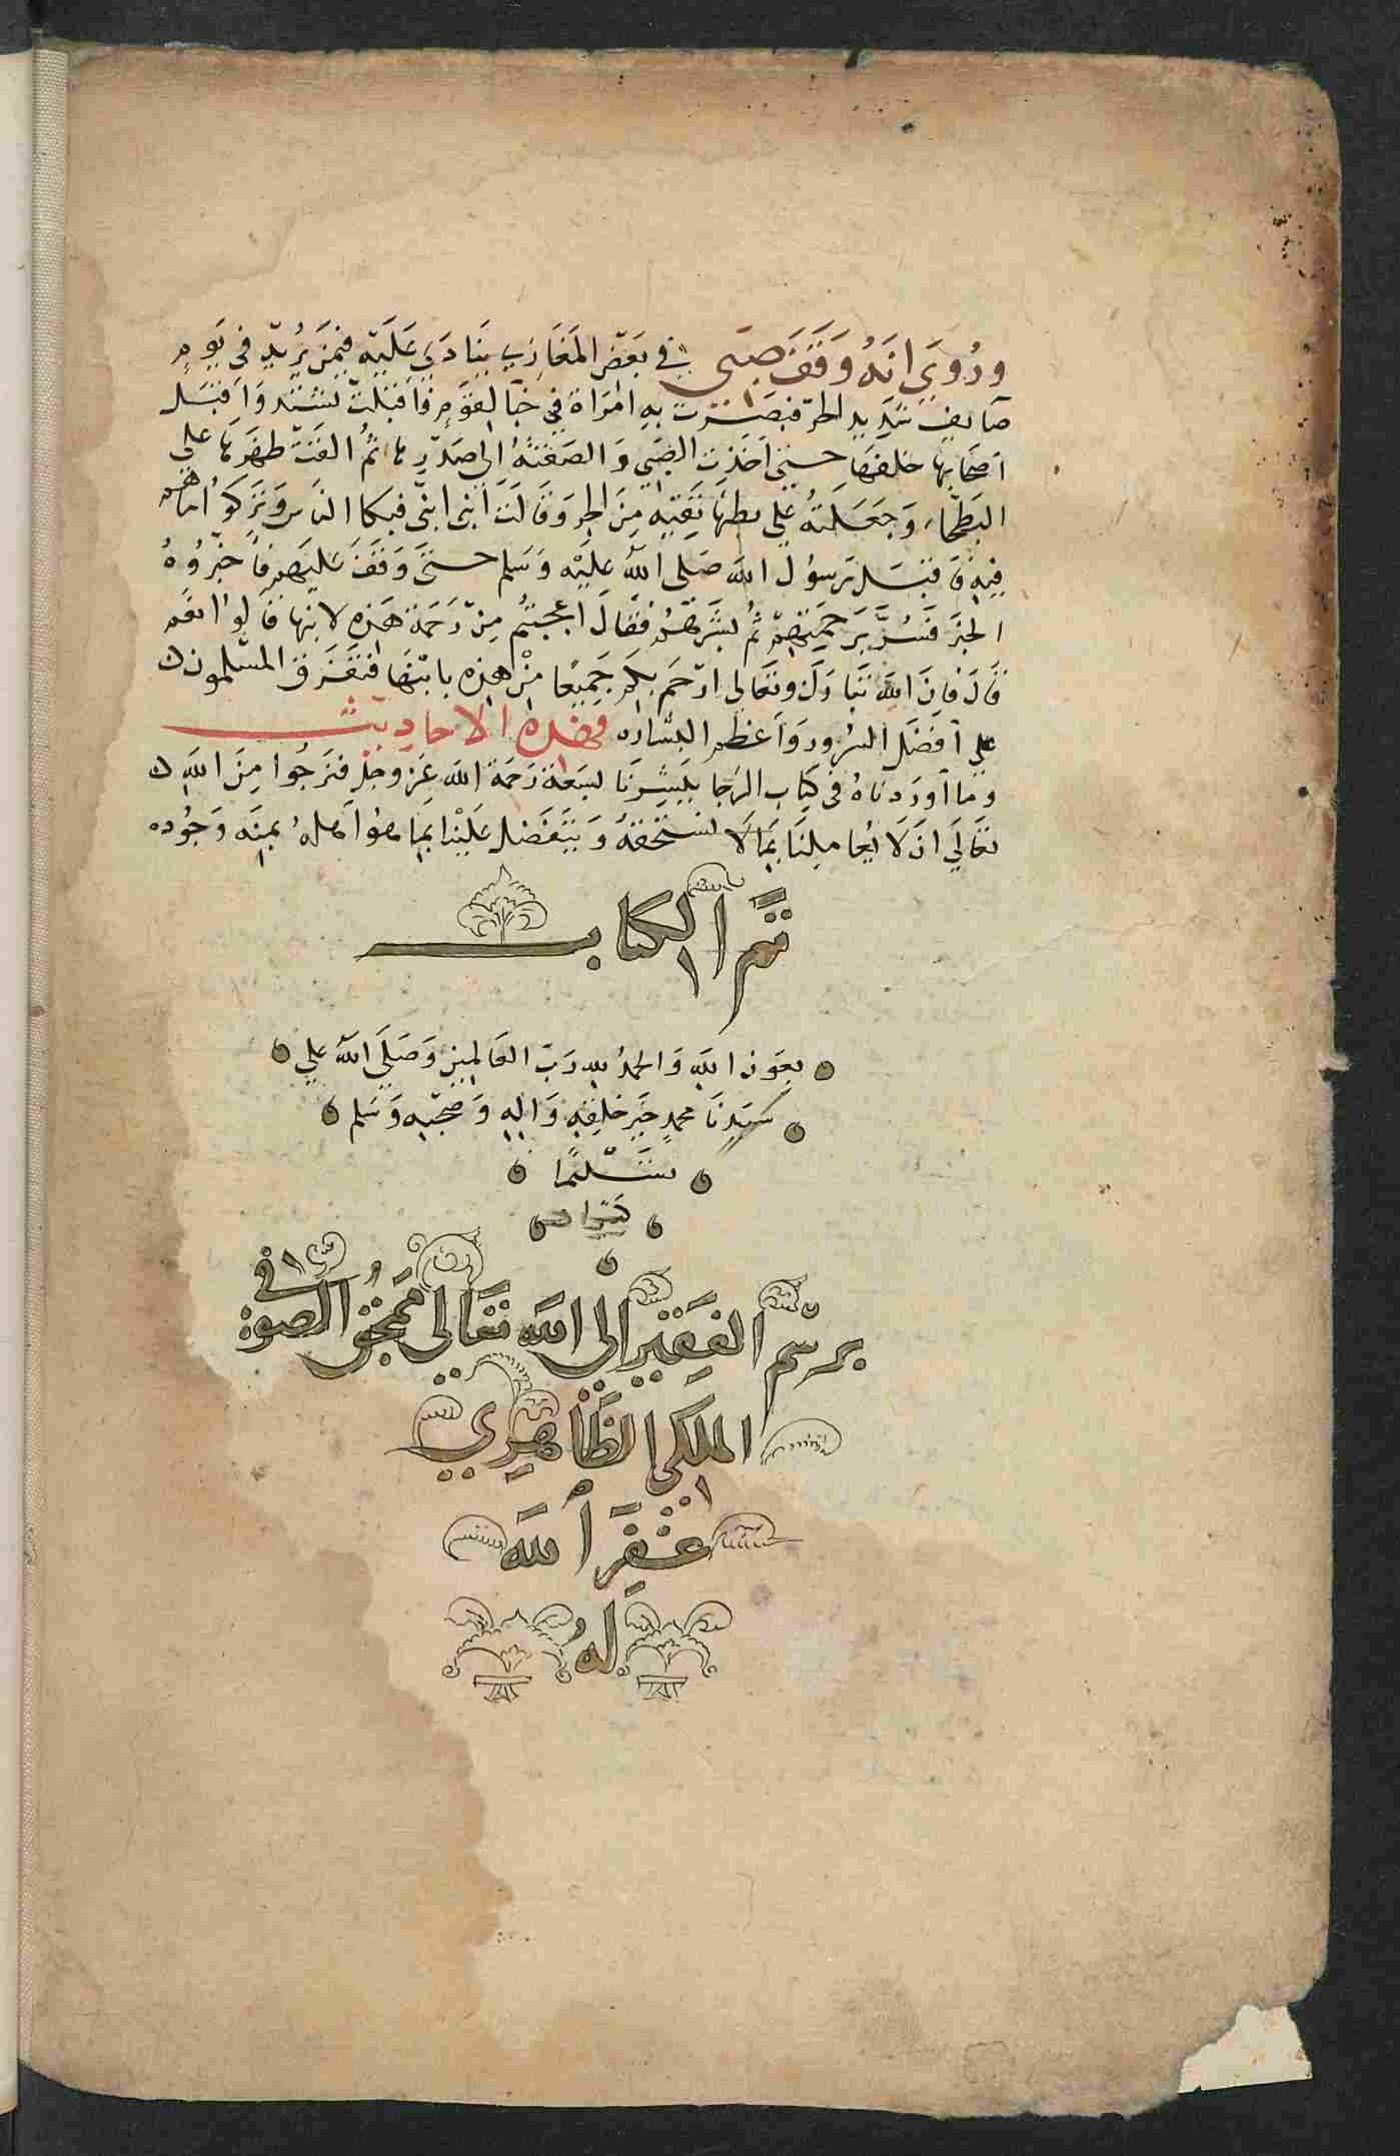 وَرُوِيَ اَنَّهُ وَقَفَ صَبِي فِي بَعْضِ المَغَازِي يُنَادَي عَلَيْهِ فِيمَنْ يُرِيْد فِي يَومٍ
صَايفٍ شَدِيدِ الحرّ فبَصُرَتْ بِهِ امْرَاة فِي خِبَا القَوْمِ فَاَقْبَلَتْ تشتَد وَاَقْبَل
اَصْحَابها خلفَهَا حتي اَخَذَتِ الصَّبِي وَالصَقَتْهُ الي صَدْرِهَا ثُمَّ القَتْ ظَهْرَهَا علي
البَطْحَاء وَجَعَلَتهُ عَلي بطنِهَا تَقِيْهِ مِنَ الحر وَقَالَتْ ابْنِي ابْنِي فبكا النَاس وَتَرَكُوا مَا هُم
فِيهِ فَاقْبَل رَسُول الله صَلي الله عَلَيْه وَسَلم حتىَ وَقَفَ عليهم فَاخبرُوهُ
الخبَرَ فَسُرَّ بِرَحمَتِهِمْ ثُم بَشَّرَهُم فَقَالَ اَعجبتُم مِنْ رَحَمة هَذِهِ لابنِها قَالوُا نَعَم
قَالَ فَاِنَ الله تَبَارَكَ وَتَعَالي ارْحَم بِكُم جَمِيعًا مِنْ هذِه بابْنِهَا فَتَفَرَقَ المسْلمون
علي اَفضَل السُرُور وَاَعْظَم البشارَه فهذه الاحاديث
وما اَورَدنَاهُ فِي كِتَابِ الرَجا يبَشِرنَا بِسَعَة رَحْمَة الله عَز وجَل فنرجُوا مِنَ الله
تعَالَي ان لَا يُعَامِلنَا بمَا لَا نستحقهُ وَيتَفَضل عَلَيْنا بمَا هوُ اَهلهُ بمنِه وَجُوده
تَمَّ الكتاب
بعَون الله وَالحمدُ لله رَبّ العَالمين وَصَلي الله علي
سَيدِنَا محمدٍ خَيرِ خلقِهِ وَالِهِ وَصَحْبِهِ وَسَلم
تسْلِيمًا
كثيرا
برسْم الفَقِير الي الله تعَالي مَمجُق الصوفي
المَلكي الظَاهِري
غفَرَ الله
لهُ